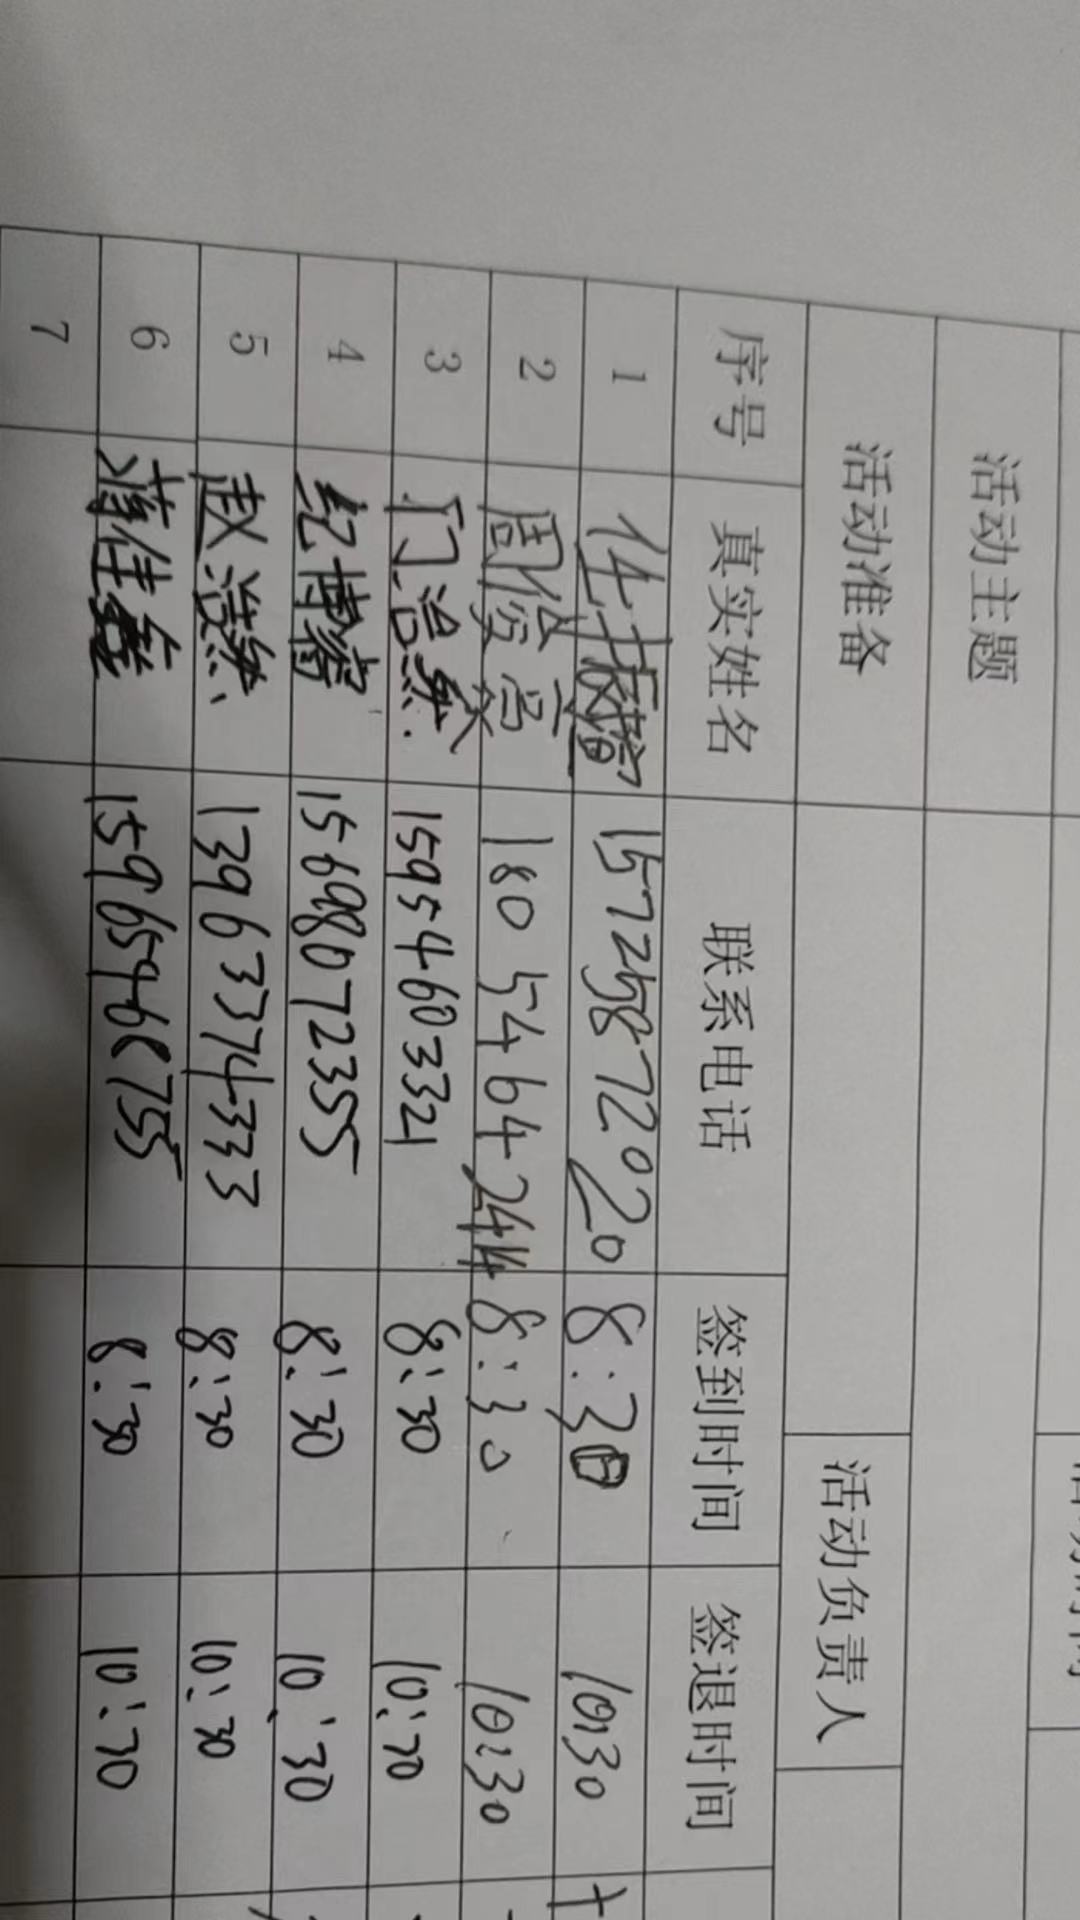 活动主题
活动准备 活动负责人
序号 真实姓名 联系电话 签到时间 签退时间
1 15725872020 8:30 10:30
2 周俊亮 18054642414 8:30 10:30
3 门浩然 15954603321 8:30 10:30
4 纪博睿 15698072355 8:30 10:30
5 赵浩然 13963374333 8:30 10:30
6 蒋佳鑫 15965946755 8:30 10:30
7